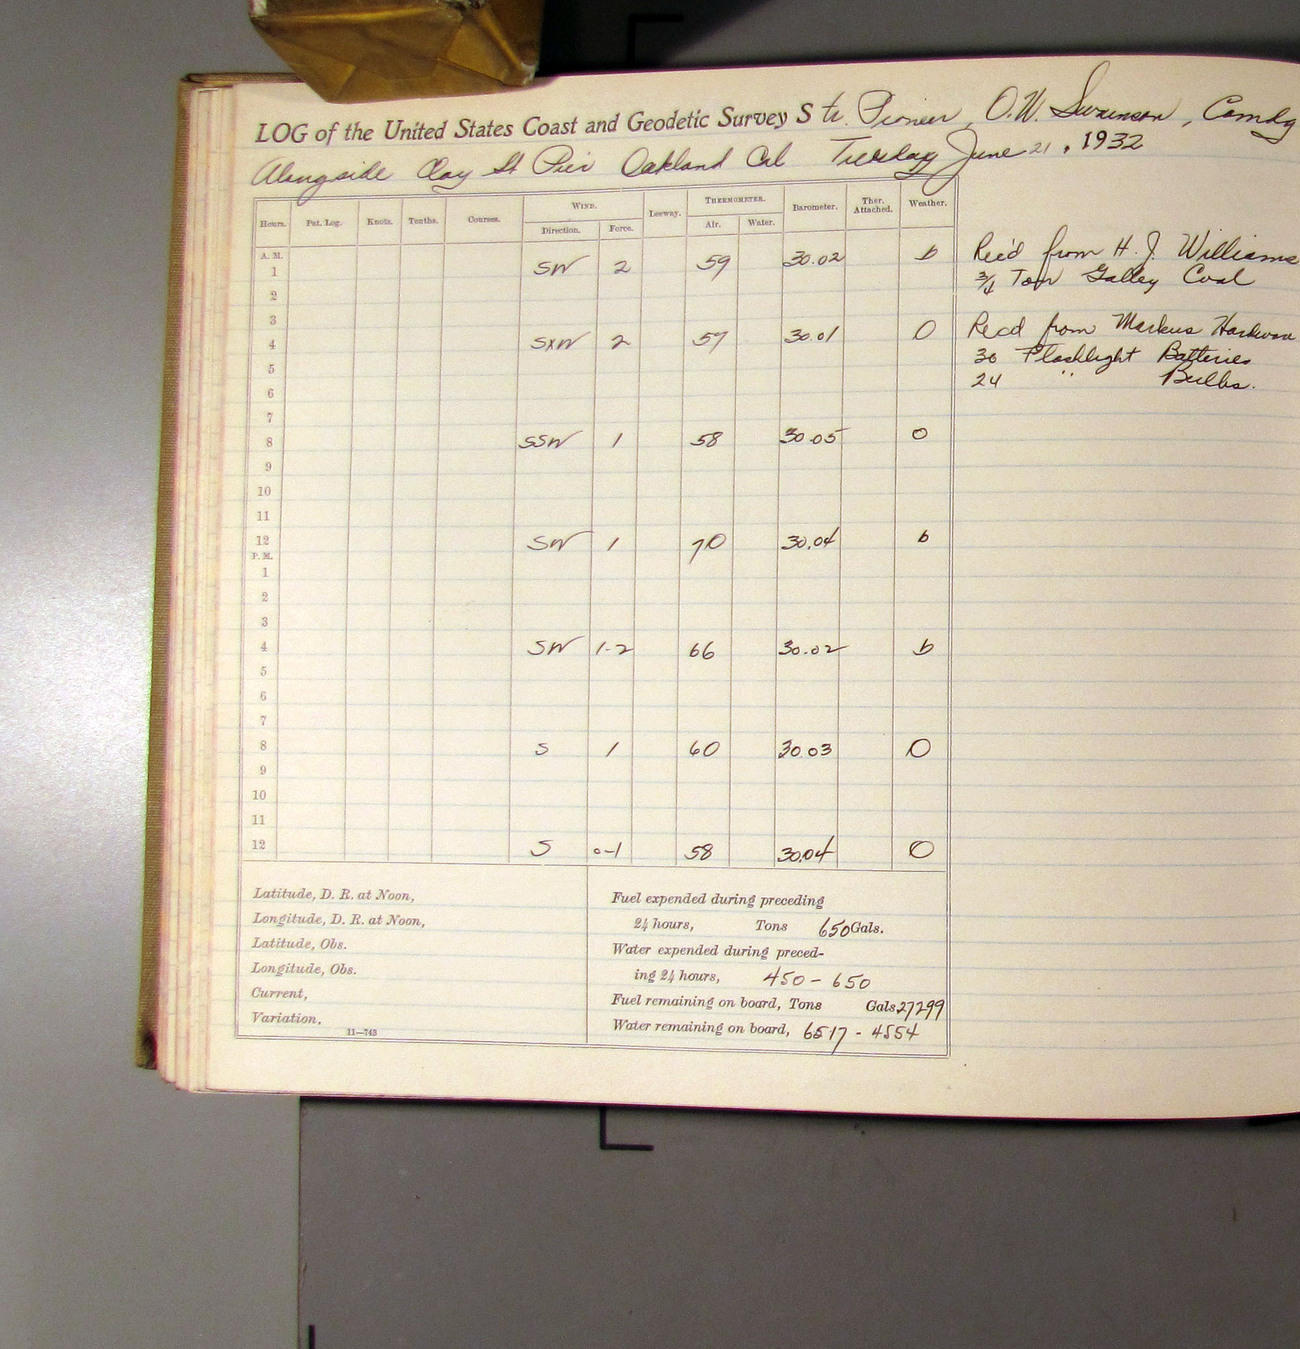 LOG of the United States Coast and Geodetic Survey Str. Pioneer, O.W. Swainson, Comdg
Alongside Clay St Pier Oakland Cal Tuesday June 21, 1932
Hours. Pat. Log. Knots. Tenths. Courses. WIND. Leeway. THERMOMETER. Barometer. Ther. Attached. Weather.
Direction. Force. Air. Water.
A. M.
1 SW 2 59 30.02 b
2
3
4 SxW 2 57 30.01 O
5
6
7
8 SSW 1 58 30.05 O
9
10
11
12 SW 1 70 30.04 b
P. M.
1
2
3
4 SW 1-2 66 30.02 b
5
6
7
8 S 1 60 30.03 O
9
10
11
12 S 0-1 58 30.04 O
Rec'd from H. J. Williams
3/4 Ton Galley Coal
Rec'd from Markus Hardware
30 Flashlight Batteries
24 " Bulbs.
Latitude, D. R. at Noon,
Longitude, D. R. at Noon,
Latitude, Obs.
Longitude, Obs.
Current,
Variation,
11—743
Fuel expended during preceding
24 hours, Tons 650 Gals.
Water expended during preced-
ing 24 hours, 450 - 650
Fuel remaining on board, Tons Gals. 27299
Water remaining on board, 6517 - 4554